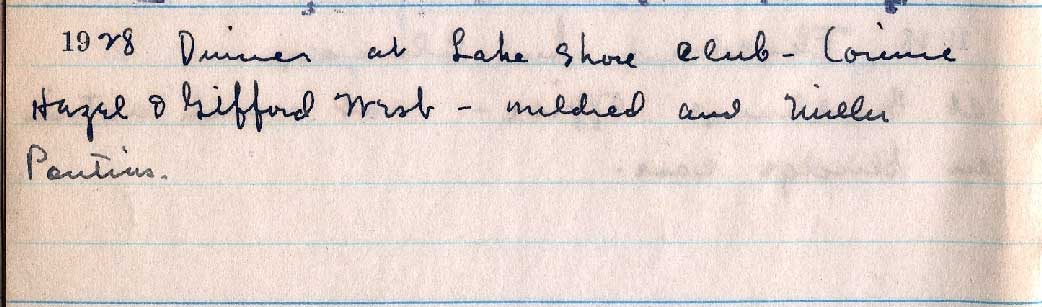 1928 Dinner at Lake Shore Club - Corinne
Hazel & Gifford West - mildred and Miller
Pontius.